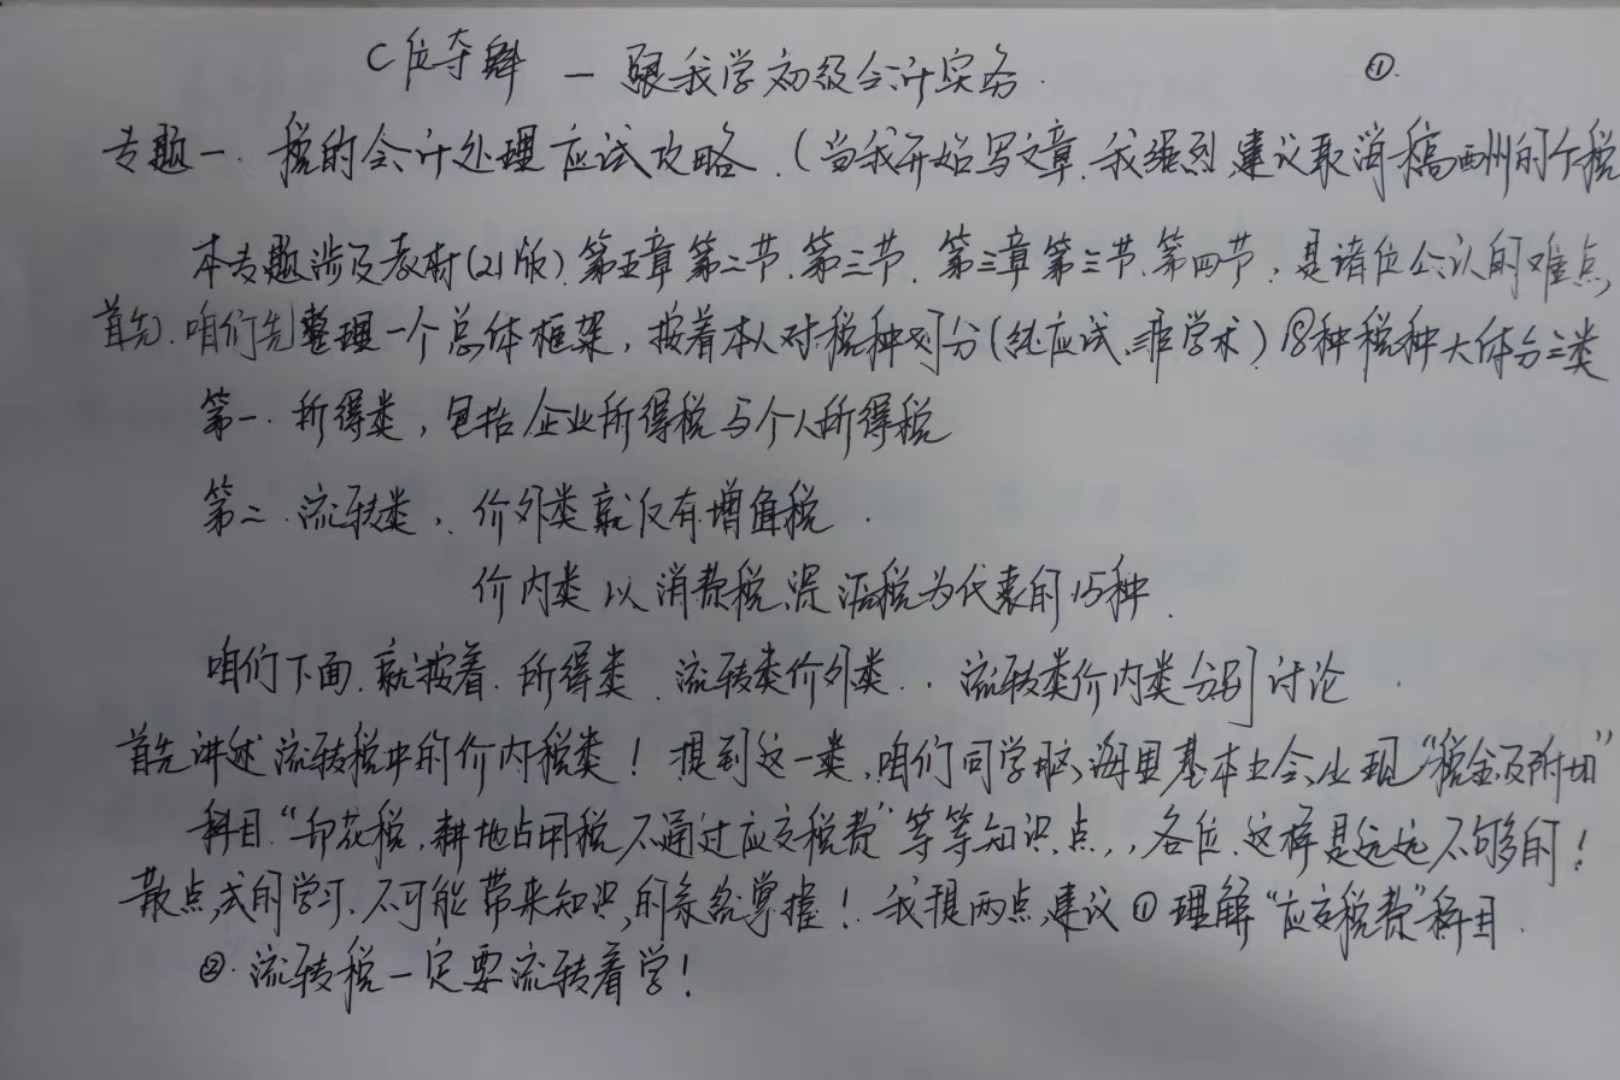 C位夺魁 — 跟我学初级会计实务. ①.
专题一. 税的会计处理应试攻略. (当我开始写文章. 我强烈建议取消稿酬的个税
本专题涉及教材(21版). 第五章第二节. 第三节. 第三章第三节. 第四节, 是诸位公认的难点,
首先. 咱们先整理一个总体框架, 按着本人对税种划分(纯应试、非学术) 18种税种大体分三类
第一. 所得类, 包括企业所得税与个人所得税
第二. 流转类, 价外类就仅有增值税.
价内类以消费税、资源税为代表的15种.
咱们下面. 就按着. 所得类. 流转类价外类.. 流转类价内类分别讨论
首先讲述流转税中的价内税类! 提到这一类, 咱们同学脑海里基本上会出现“税金及附加”
科目. “印花税, 耕地占用税不通过应交税费”等等知识点,, 各位. 这样是远远不够的!
散点式的学习. 不可能带来知识的系统掌握! 我提两点建议 ① 理解“应交税费”科目.
②. 流转税一定要流转着学!